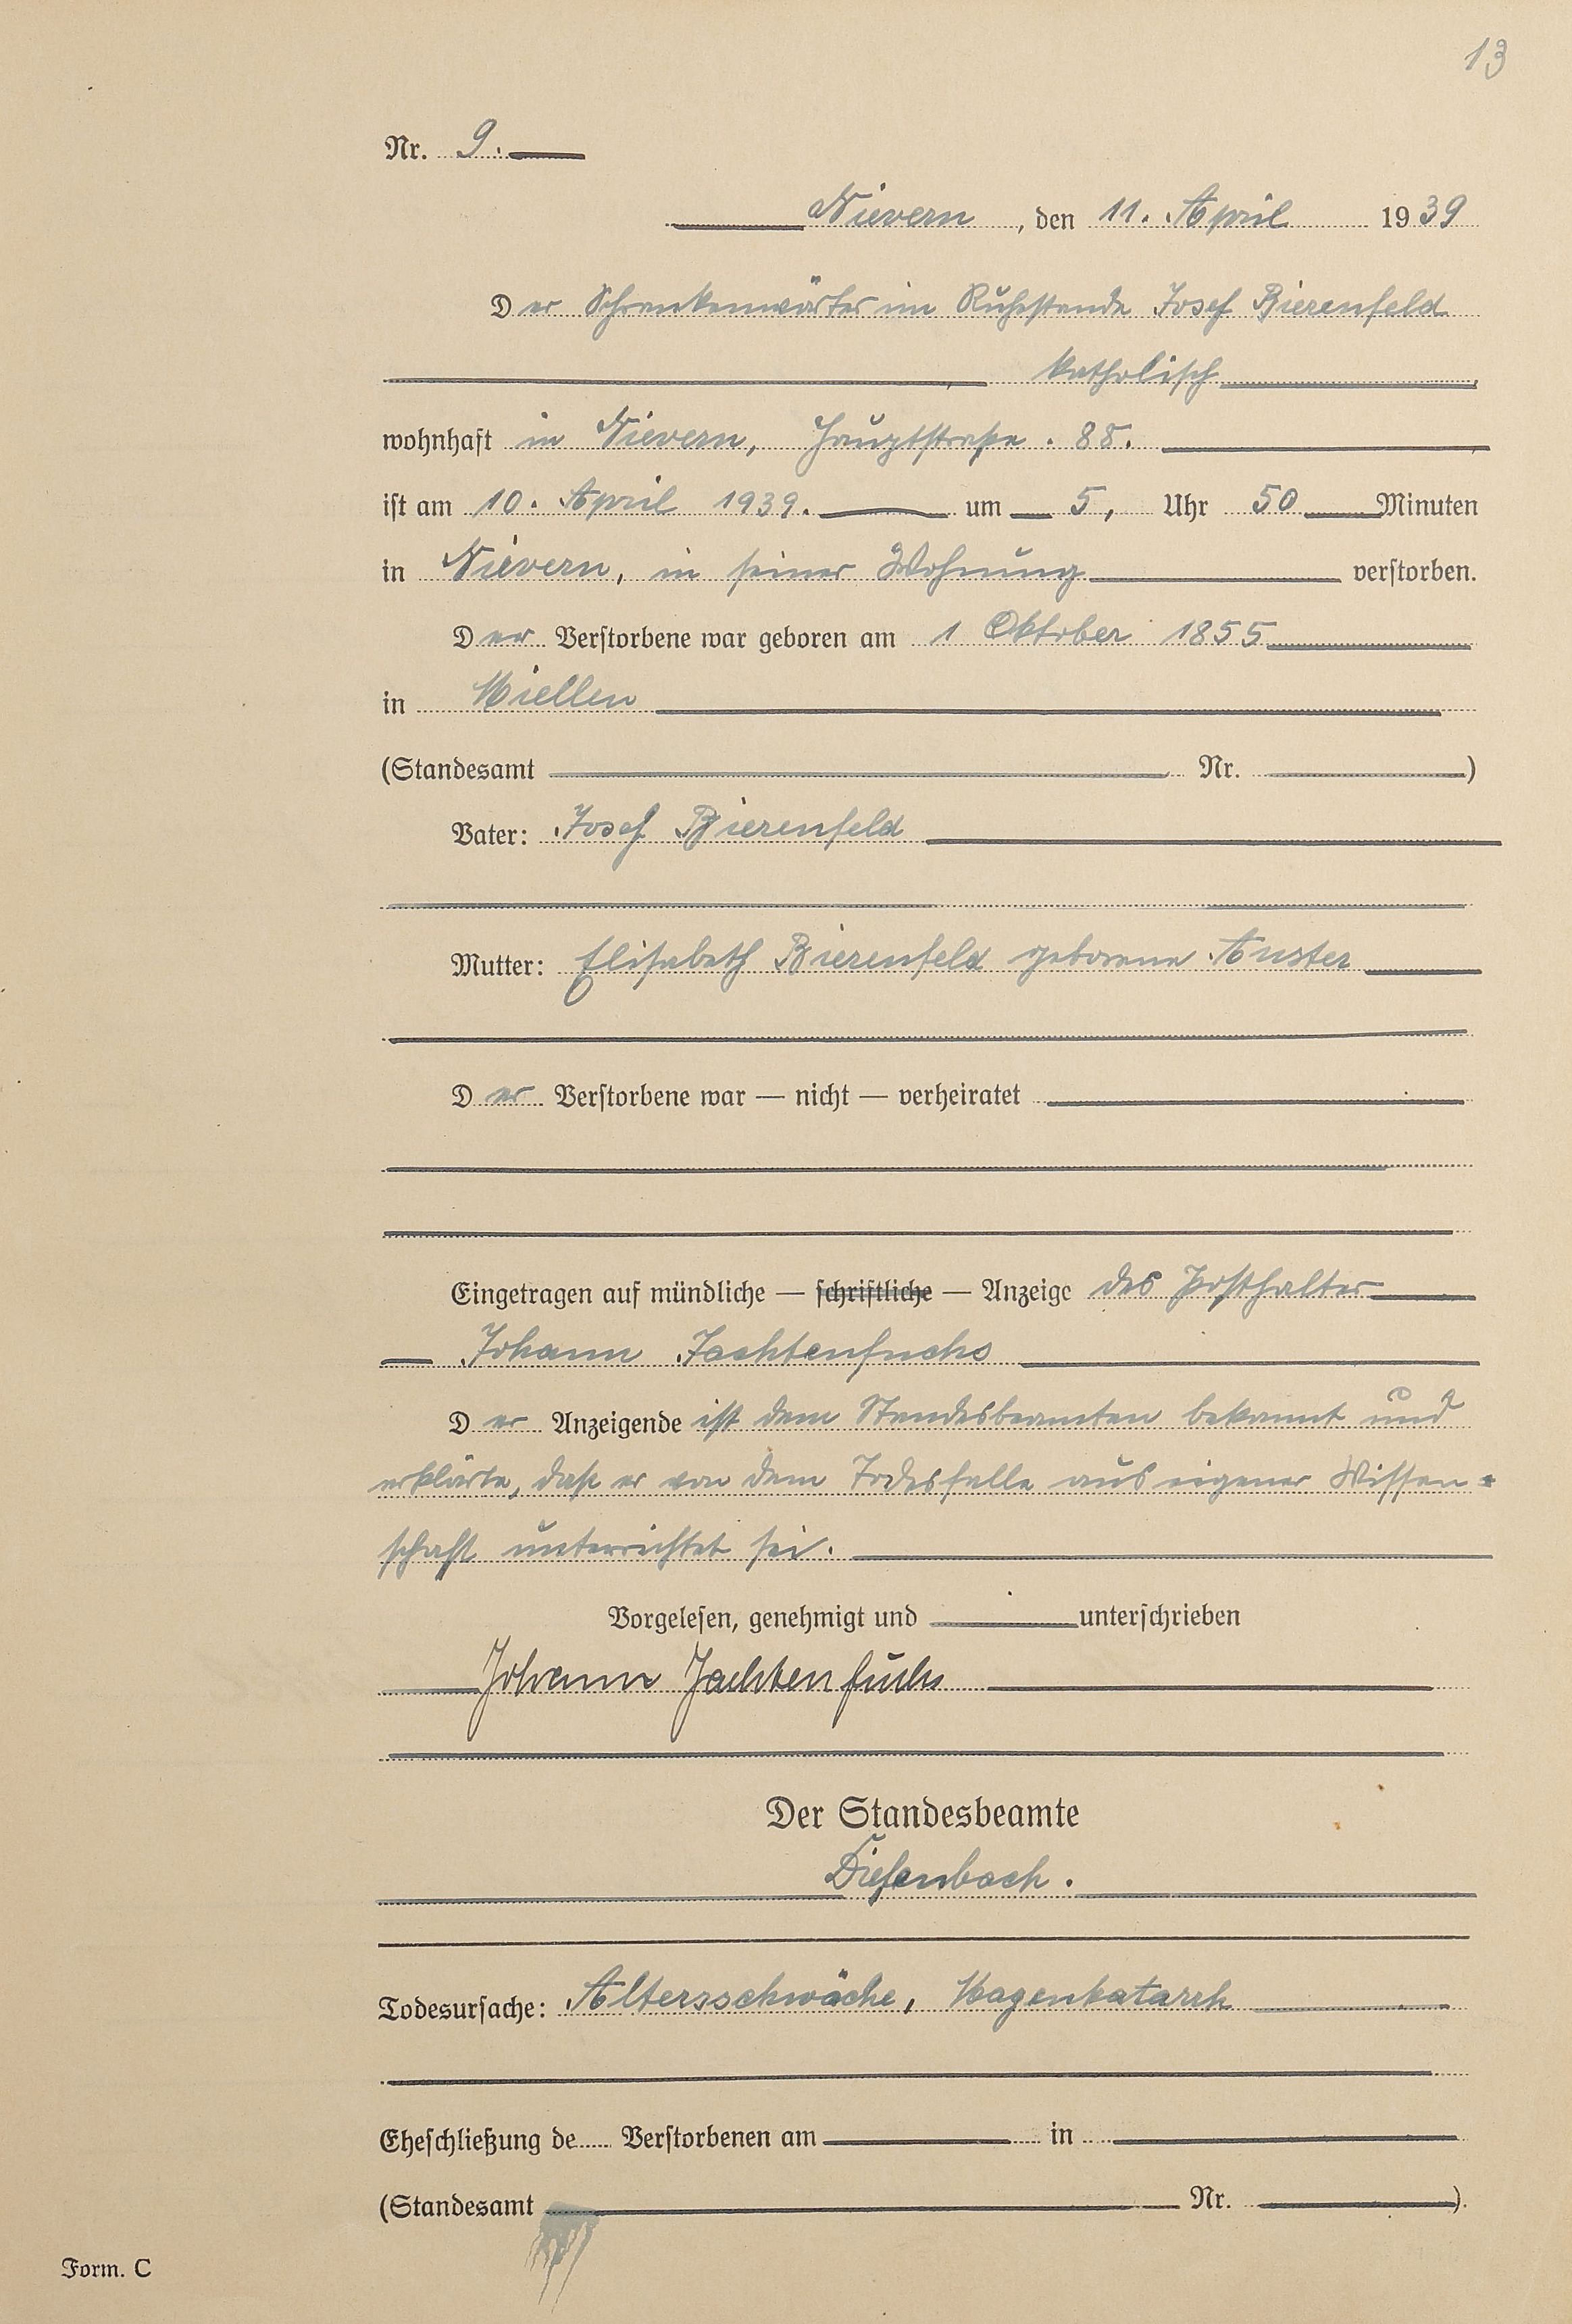 13
Nr. 9.
Nievern, den 11. April 1939
Der Schrankenwärter im Ruhestande Josef Bierenfeld
katholisch
wohnhaft in Nievern, Hauptstraße . 88.
ist am 10. April 1939. um 5, Uhr 50 Minuten
in Nievern, in seiner Wohnung verstorben.
Der Verstorbene war geboren am 1 Oktober 1855
in Miellen
(Standesamt Nr. )
Vater: Josef Bierenfeld
Mutter: Elisabeth Bierenfeld geborene Anster
Der Verstorbene war — nicht — verheiratet
Eingetragen auf mündliche — schriftliche — Anzeige des Posthalter
Johann Jachtenfuchs
Der Anzeigende ist dem Standesbeamten bekannt und
erklärte, daß er von dem Todesfalle aus eigener Wissen=
schaft unterrichtet sei.
Vorgelesen, genehmigt und unterschrieben
Johann Jachtenfuchs
Der Standesbeamte
Diefenbach.
Todesursache: Altersschwäche, Magenkatarrh
Eheschließung de Verstorbenen am in
(Standesamt Nr. ).
Form. C